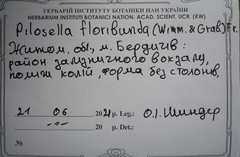 ГЕРБАРІЙ ІНСТИТУТУ БОТАНІКИ НАН УКРАЇНИ
HERBARIUM INSTITUTI BOTANICI NATION. ACAD. SCIENT. UCR. (KW)
Pilosella floribunda (Wimm. & Grab.) Fr.
Житом. обл., м. Бердичів:
район залізничного вокзалу,
поміж колій, форма без столонів,
21 06 2021 р. Leg.: О.І. Шиндер
20 р. Det.:
№